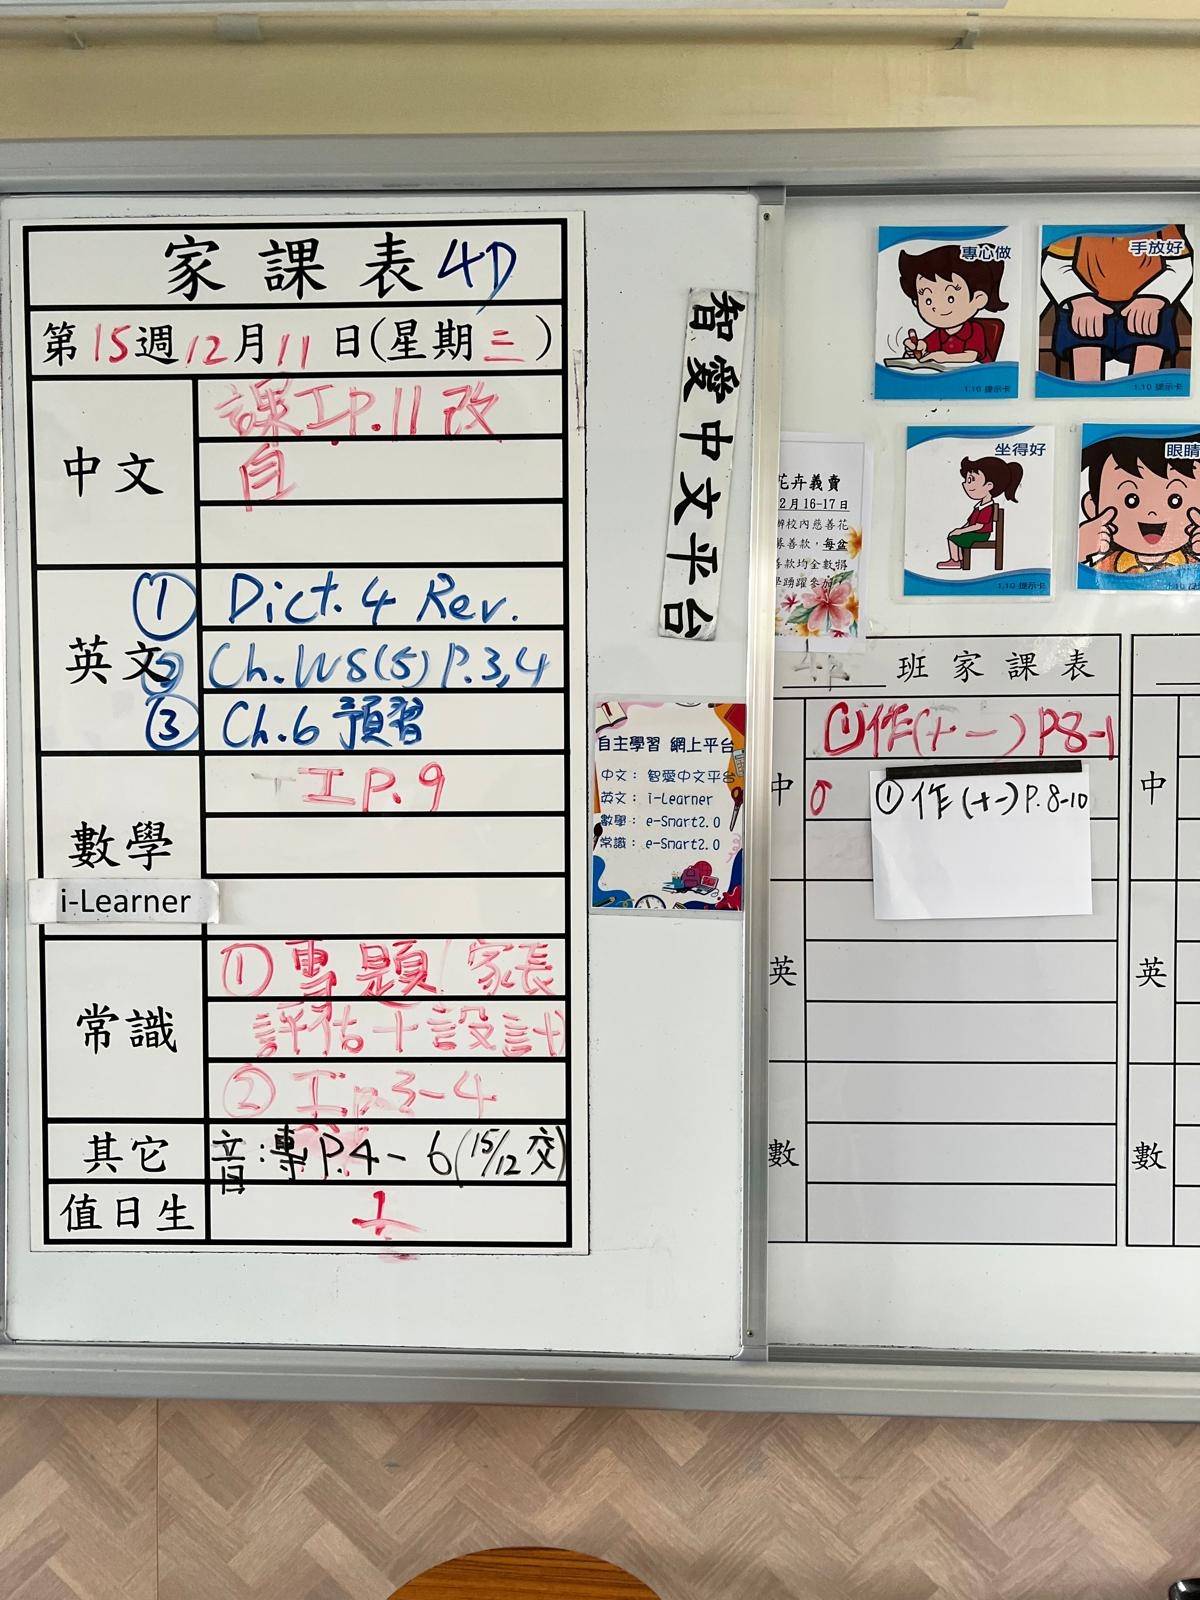 家課表 4D
第15週12月11日(星期三)
中文
課工P.11改
自
英文
① Dict. 4 Rev.
② Ch.WS(5) P.3,4
③ Ch.6 預習
數學
工P.9
i-Learner
常識
① 專題/家長
評估+設計
② 工p.3-4
其它
音:專P.4-6(15/12交)
值日生
1
智愛中文平台
自主學習 網上平台
中文: 智愛中文平台
英文: i-Learner
數學: e-Smart2.0
常識: e-Smart2.0
專心做
1.10 提示卡
手放好
1.10 提示卡
坐得好
1.10 提示卡
眼睛
1.10 提
花卉義賣
2月16-17日
辦校內慈善花
善款,每盆
善款均全數捐
踴躍參加
班家課表
中
①作(+-) P8-1
①作(+-)P.8-10
英
數
中
英
數